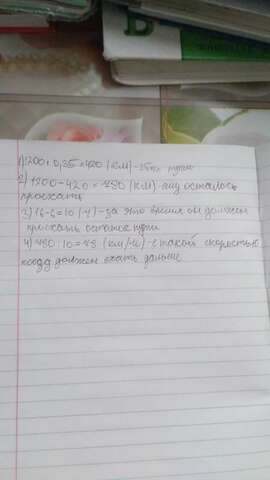 1) 1200 · 0,35 = 420 (км) - 35% пути
2) 1200 - 420 = 780 (км) - ему осталось
проехать
3) 16-6=10 (ч) - за это время он должен
проехать остаток пути
4) 780 : 10 = 78 (км/ч) - с такой скоростью
поезд должен ехать дальше